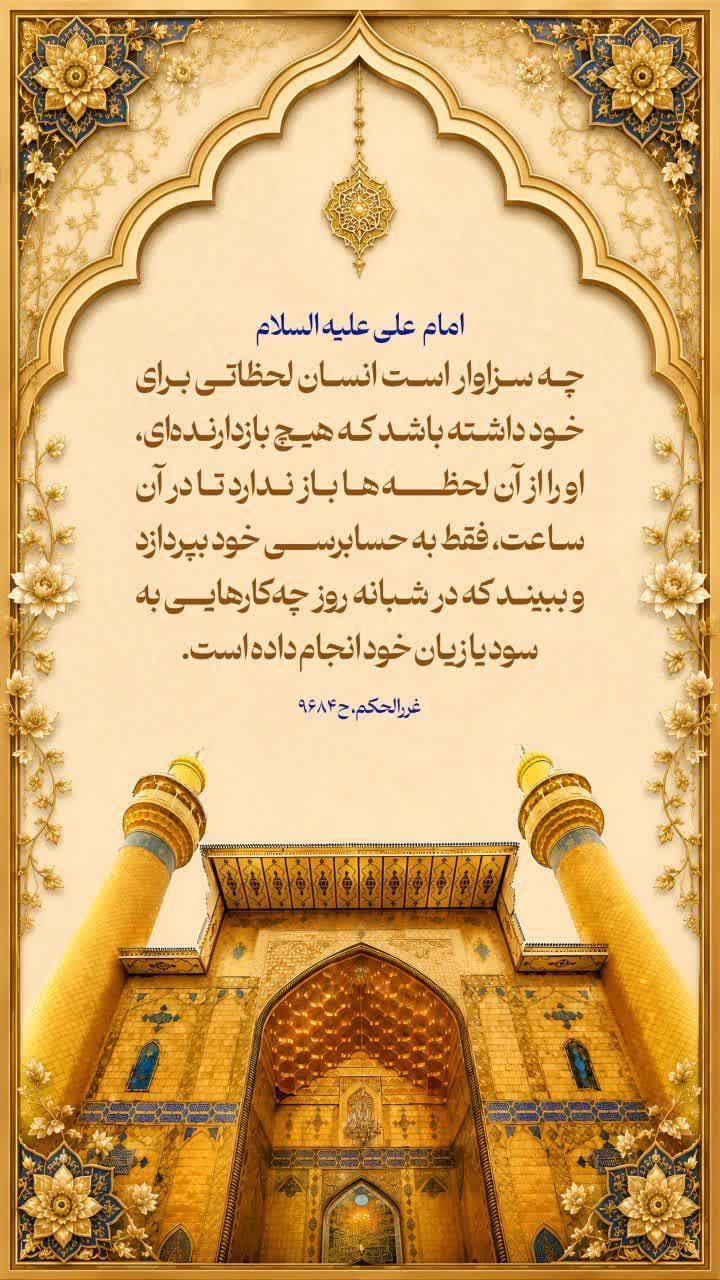 امام علی علیه السلام
چه سزاوار است انسان لحظاتی برای
خود داشته باشد که هیچ بازدارنده‌ای،
او را از آن لحظه ها باز ندارد تا در آن
ساعت، فقط به حسابرسی خود بپردازد
و ببیند که در شبانه روز چه کارهایی به
سود یا زیان خود انجام داده است.
غررالحکم، ح۹۶۸۴